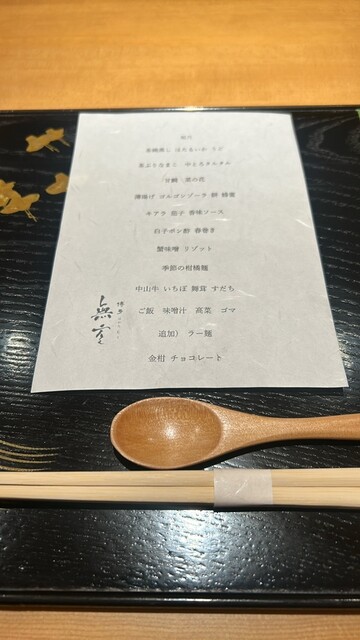 茶碗蒸し ほたるいか うど
炙ぶりなまこ 中とろタルタル
甘鯛 菜の花
薄揚げ ゴルゴンゾーラ 餅 蜂蜜
キアラ 茄子 香味ソース
白子ポン酢 春巻き
蟹味噌 リゾット
季節の柑橘麺
中山牛 いちぼ 舞茸 すだち
ご飯 味噌汁 高菜 ゴマ
追加) ラー麺
金柑 チョコレート
博多